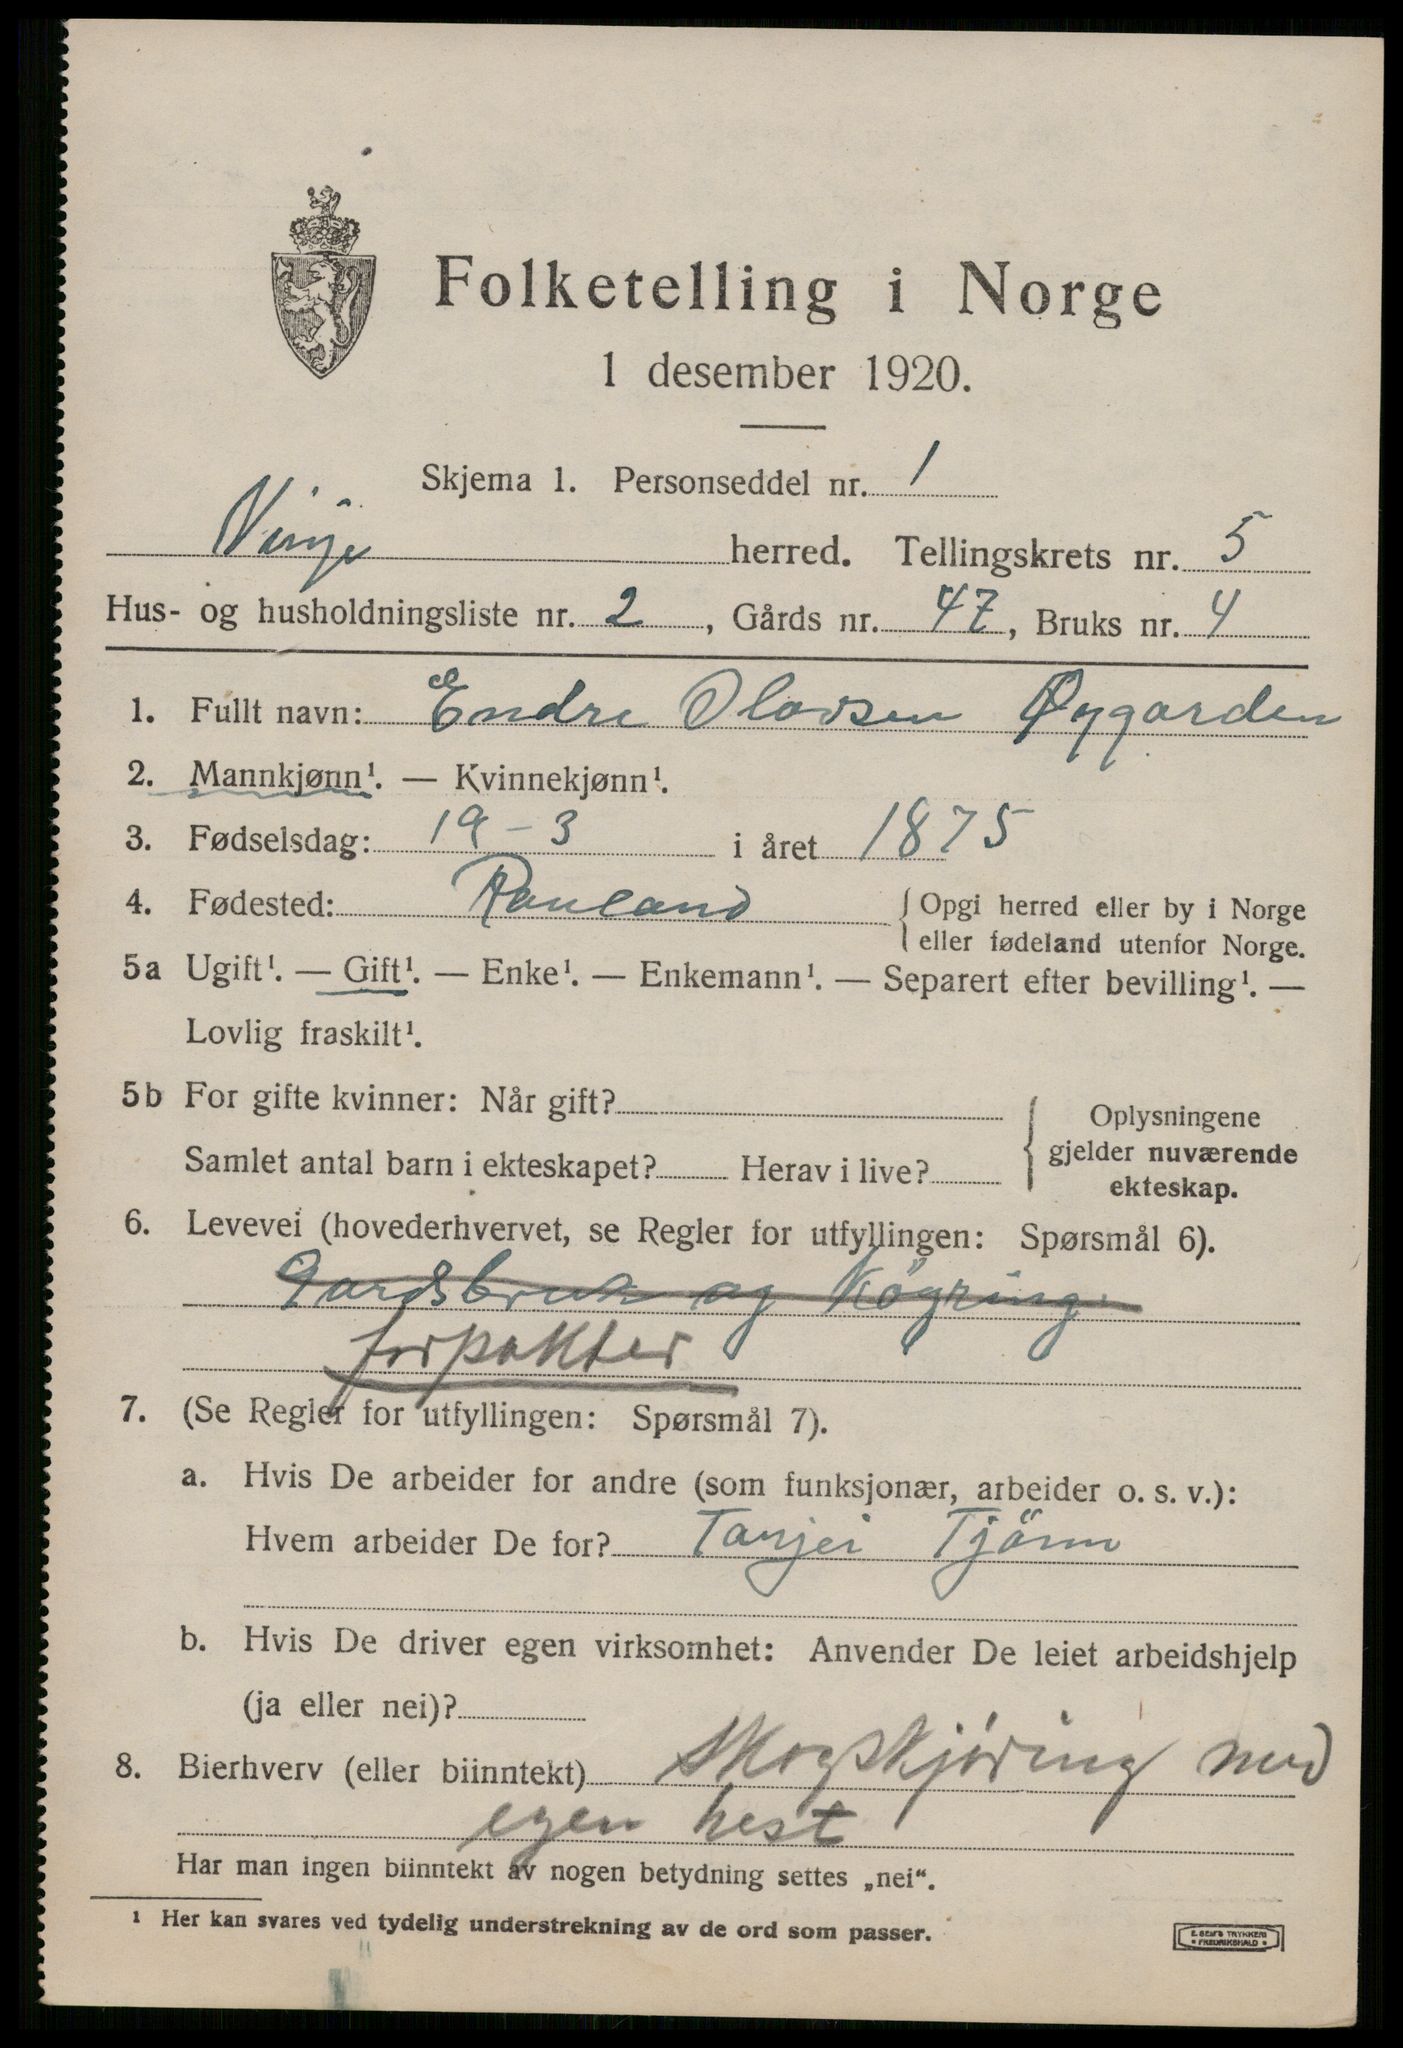 Folketelling i Norge
1 desember 1920.
Skjema 1. Personseddel nr. 1
Vinje herred. Tellingskrets nr. 5
Hus- og husholdningsliste nr. 2, Gårds nr. 47, Bruks nr. 4
1. Fullt navn: Endre Olavsen Øygarden
2. Mannkjønn¹. — Kvinnekjønn¹.
3. Fødselsdag: 19-3 i året 1875
4. Fødested: Rauland { Opgi herred eller by i Norge
eller fødeland utenfor Norge.
5a Ugift¹. — Gift¹. — Enke¹. — Enkemann¹. — Separert efter bevilling¹. —
Lovlig fraskilt¹.
5b For gifte kvinner: Når gift?
Samlet antal barn i ekteskapet? Herav i live?
{ Oplysningene
gjelder nuværende
ekteskap.
6. Levevei (hovederhvervet, se Regler for utfyllingen: Spørsmål 6).
Gardsbruk og Köyring
forpakter
7. (Se Regler for utfyllingen: Spørsmål 7).
a. Hvis De arbeider for andre (som funksjonær, arbeider o. s. v.):
Hvem arbeider De for? Tarjei Tjönn
b. Hvis De driver egen virksomhet: Anvender De leiet arbeidshjelp
(ja eller nei)?
8. Bierhverv (eller biinntekt) Skogskjøring med
egen hest
Har man ingen biinntekt av nogen betydning settes „nei“.
¹ Her kan svares ved tydelig understrekning av de ord som passer.
E. SEM'S TRYKKERI
• FREDRIKSHALD •